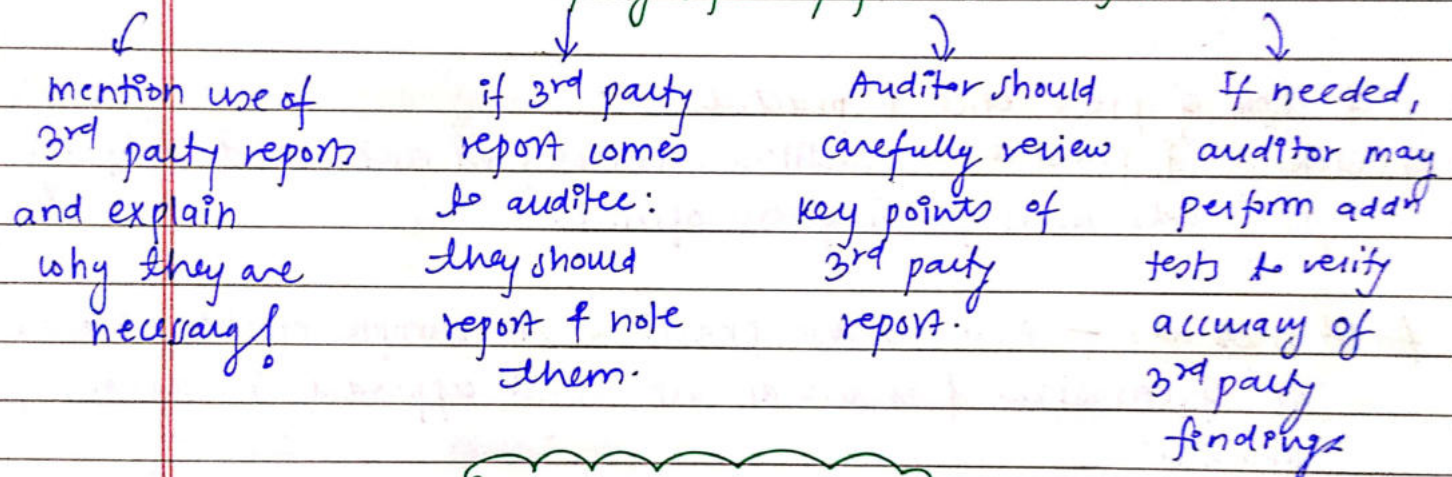 mention use of
3rd party reports
and explain
why they are
necessary!
if 3rd party
report comes
to auditee:
they should
report & note
them.
Auditor should
carefully review
key points of
3rd party
report.
If needed,
auditor may
perform addn
tests to verify
accuracy of
3rd party
findings